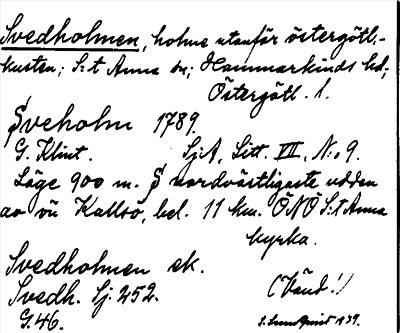 Svedholmen, holme utanför östergötl.-
kusten; S:t Anna sn; Hammarkinds hd;
Östergötl. l.
Sveholm 1789.
G. Klint. Sj:A, Litt. VII, N:o 9.
Läge 900 m. S nordvästligaste udden
av ön Kallsö, bel. 11 km. ÖNÖ S:t Anna
kyrka.
Svedholmen ek.
Svedh. Sj. 252. (Vänd!)
G. 46. 1939.